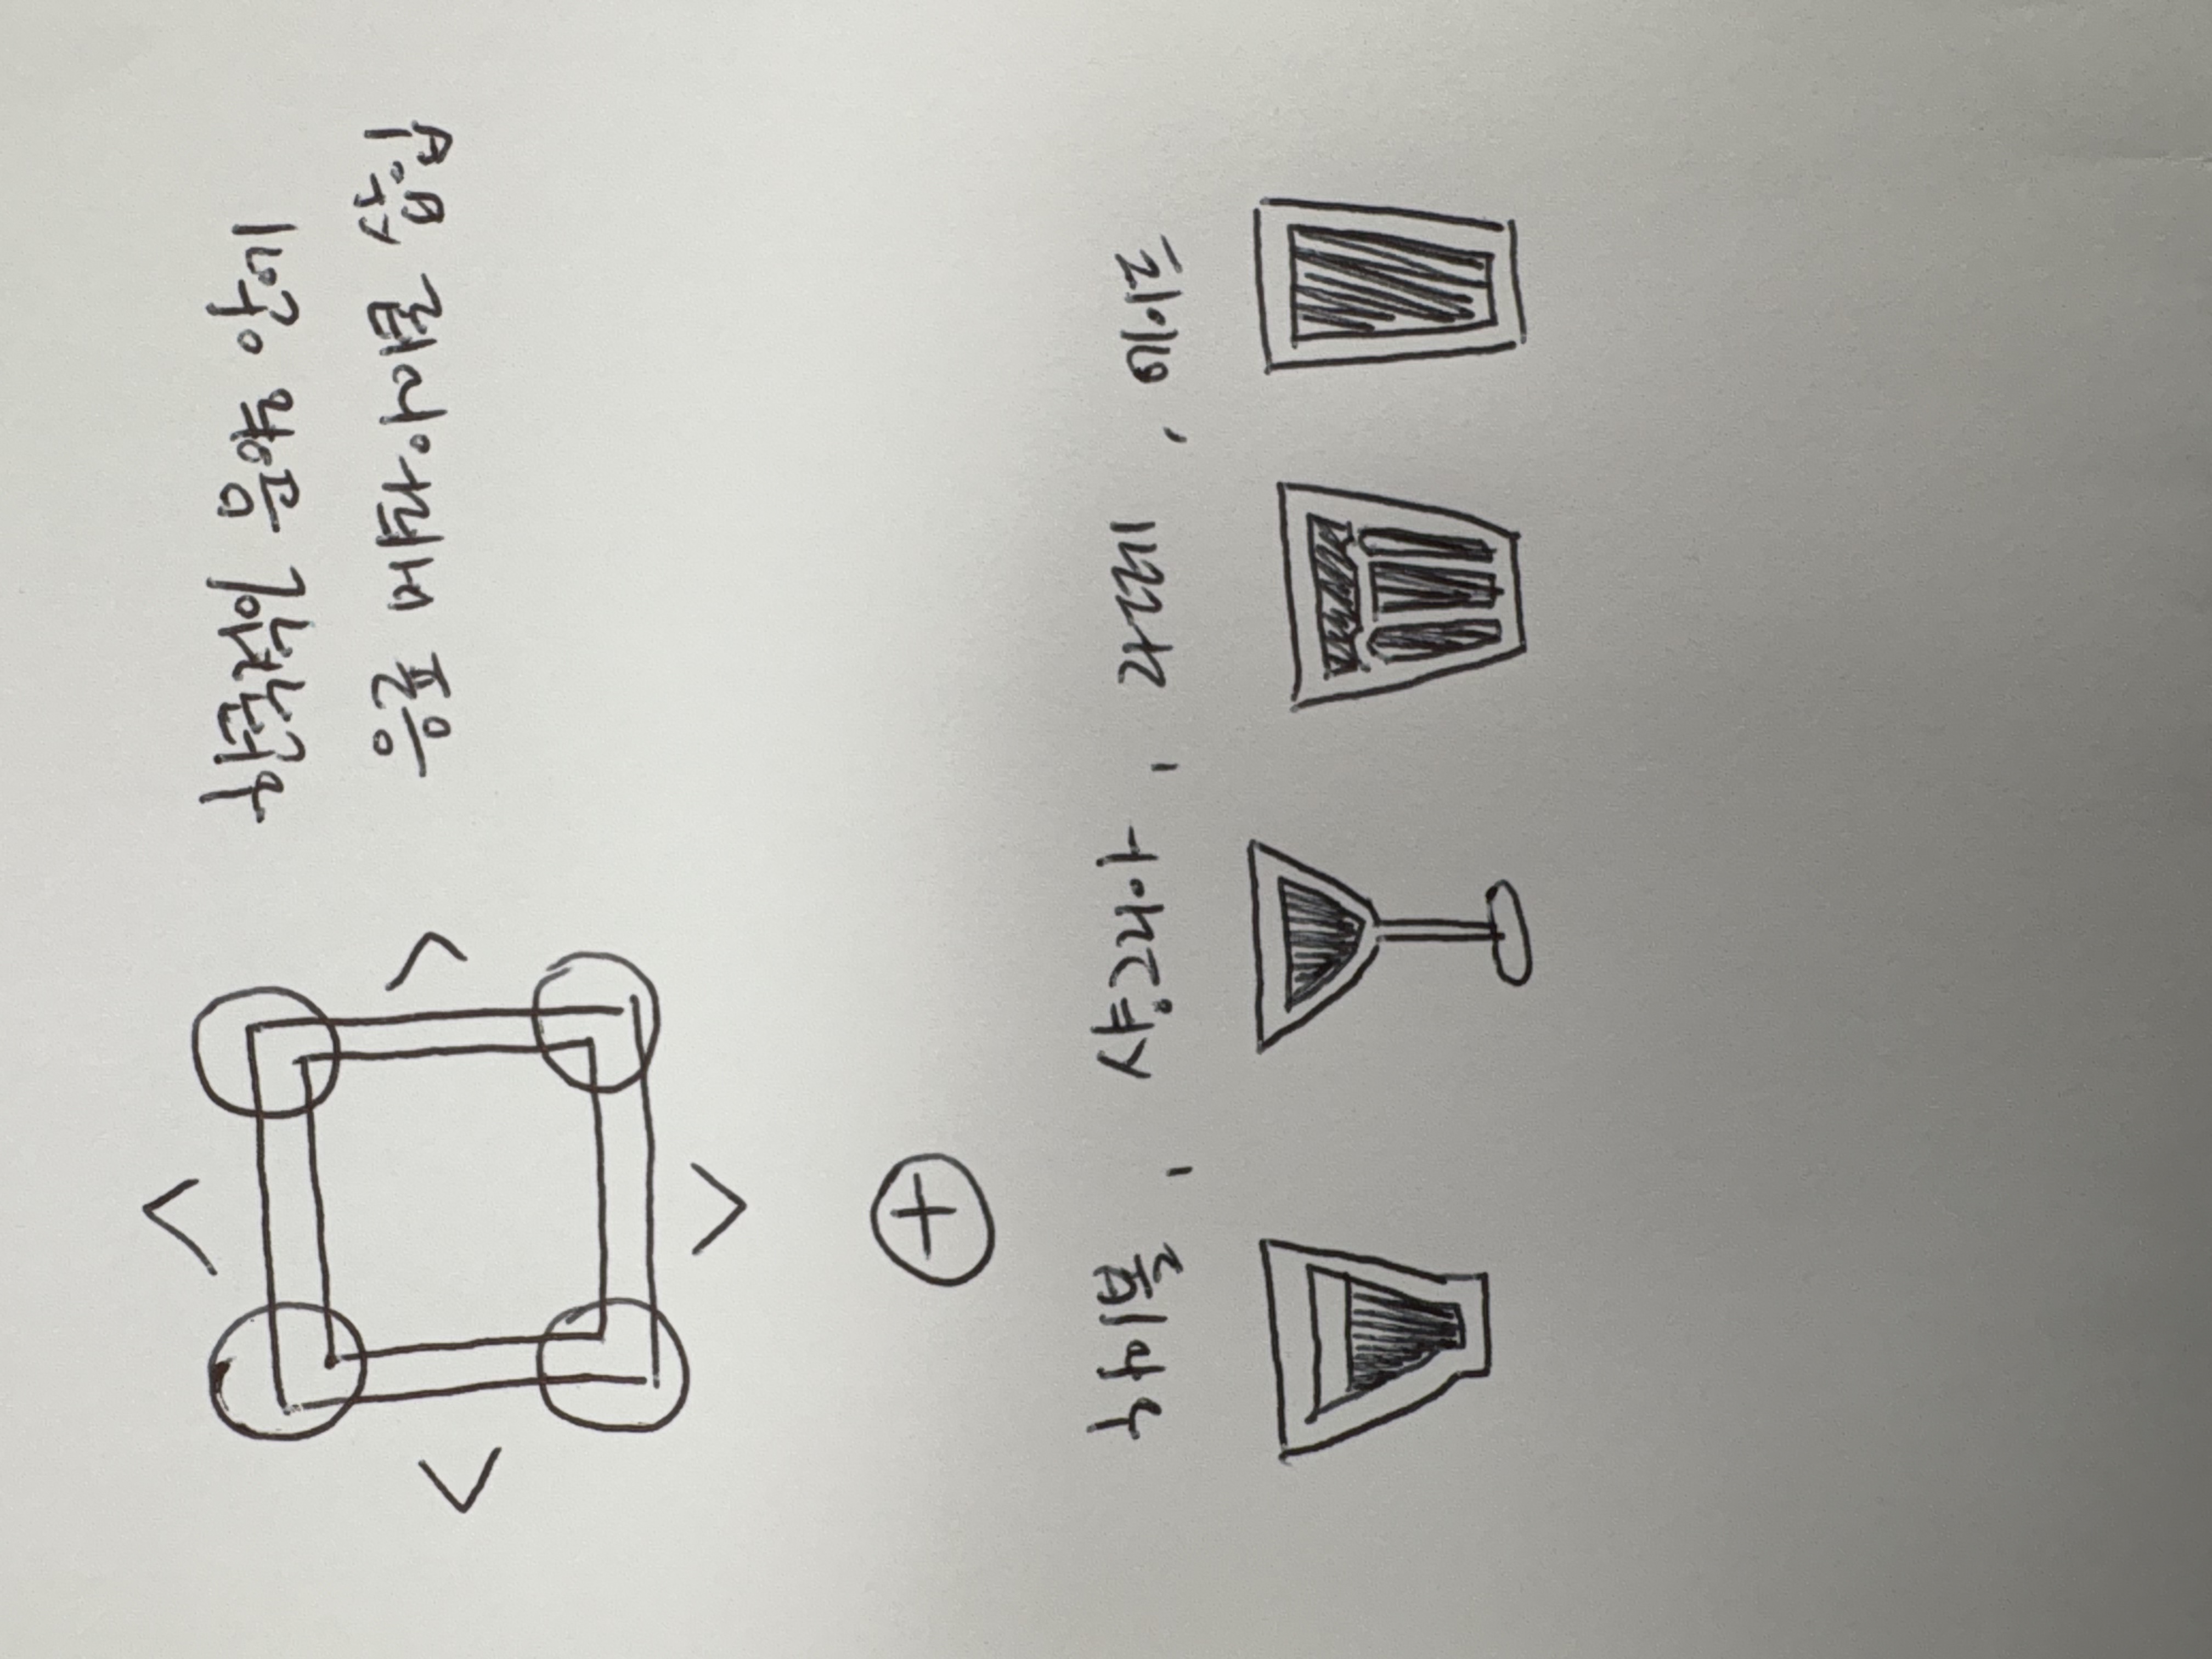 한국적인 문양 안에
음료 메타아이콘 삽입
하이볼, 샹그리아, 라떼, 에이드